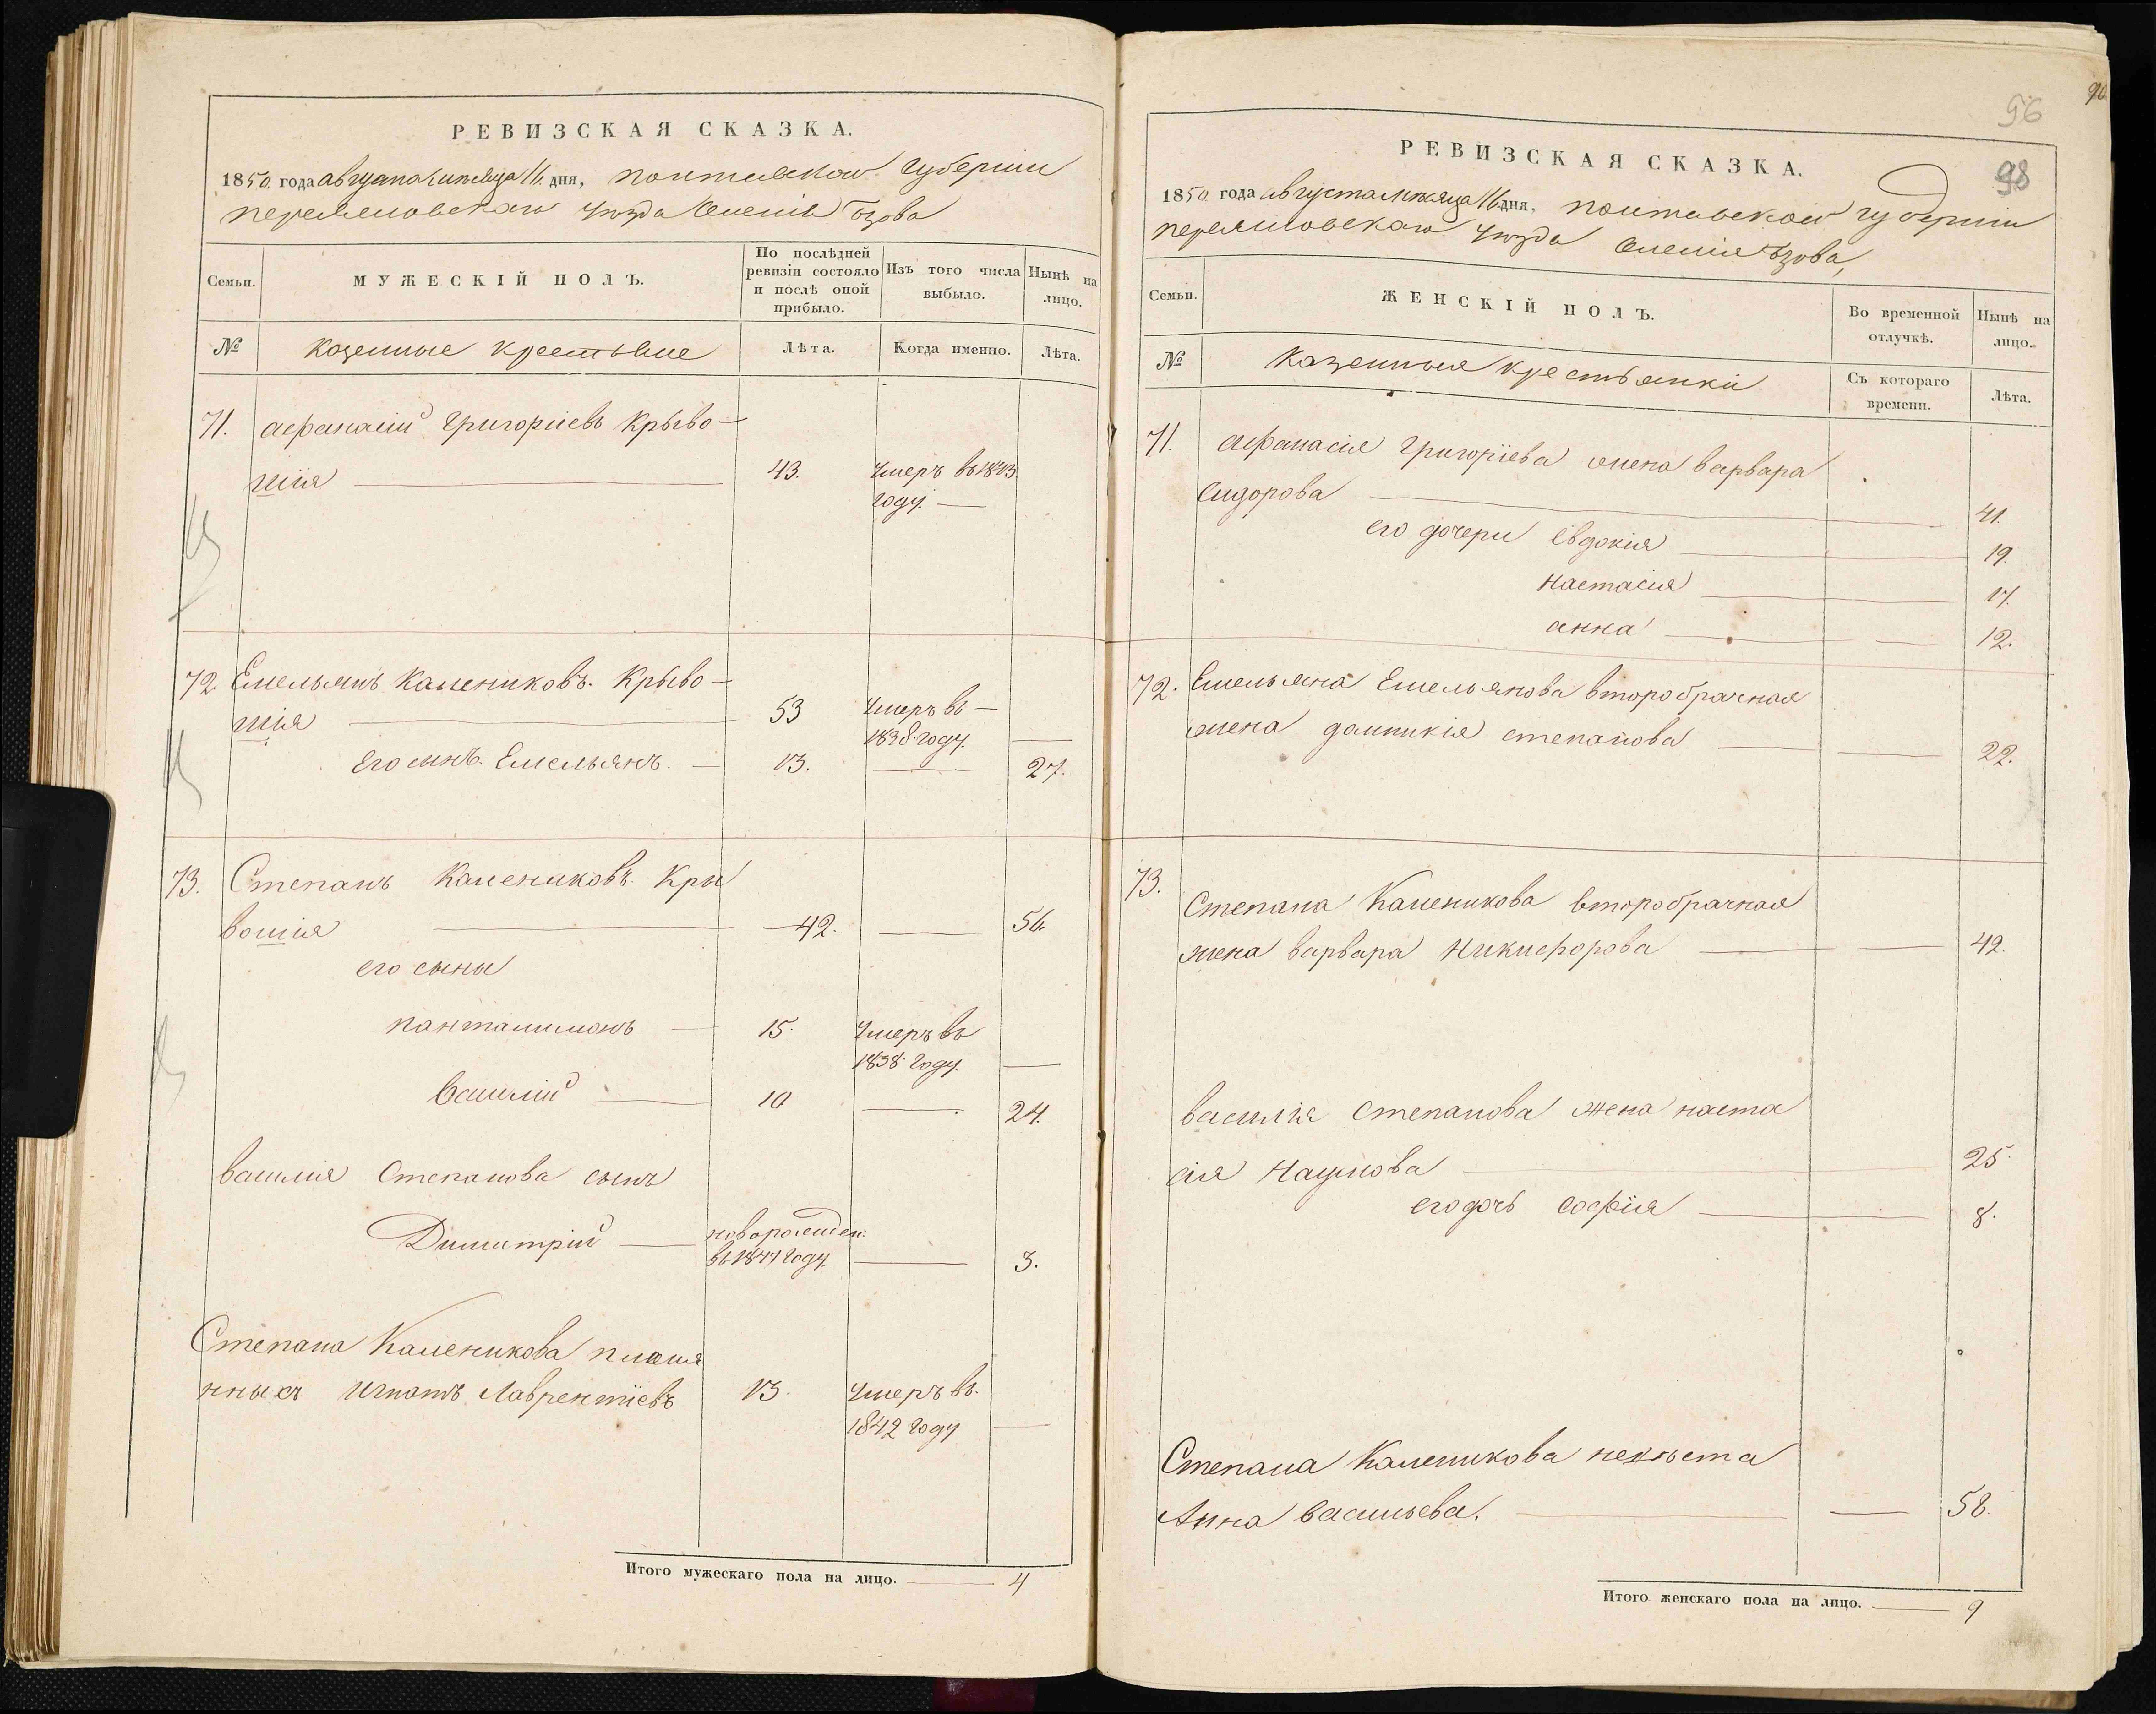 РЕВИЗСКАЯ СКАЗКА.
1850 года августа месяца 16 дня, полтавской губернии
переяславскаго уезда Селенія Бзова
Семьи.
МУЖЕСКІЙ ПОЛЪ.
По послѣдней
ревизіи состояло
и послѣ оной
прибыло.
Изъ того числа
выбыло.
Нынѣ на
лицо.
№
Казенные крестьяне
Лѣта.
Когда именно.
Лѣта.
71. афанасій григоріевъ Крыво-
шія 43. Умеръ в 1843.
году.
72. Емельянъ Калениковъ. Крыво-
шія 53 Умеръ въ
1838. году.
его сынъ. Емельянъ. 13. 27.
73. Степанъ Калениковъ. Кры
вошія 42. 56.
его сыны
панталимонъ 15. Умеръ въ
1838. году.
василій 10 24.
василія Степанова сынъ
Димитрій новорожден.
въ 1847 году. 3.
Степана Каленикова племя
нныкъ Игнатъ Лаврентіевъ 13. Умеръ въ.
1842 году
Итого мужескаго пола на лицо. 4
96
98
РЕВИЗСКАЯ СКАЗКА.
1850 года августа месяца 16 дня, полтавской губерніи
переяславскаго уезда Селенія Бзова,
Семьи.
ЖЕНСКІЙ ПОЛЪ.
Во временной
отлучкѣ.
Нынѣ на
лицо.
№
Казенныя крестьянки
Съ котораго
времени.
Лѣта.
71. афанасія григоріева жена варвара
сидорова 41.
его дочери Евдокія 19.
настасія 17.
анна 12.
72. Емельяна Емельянова второбрачная
жена домникія степанова 22.
73.
Степана Каленикова второбрачная
жена варвара никифорова 42.
василія степанова жена наста
сія Наумова 25.
его дочь софія 8.
Степана Каленикова невѣста
Анна васильева. 58.
Итого женскаго пола на лицо. 9